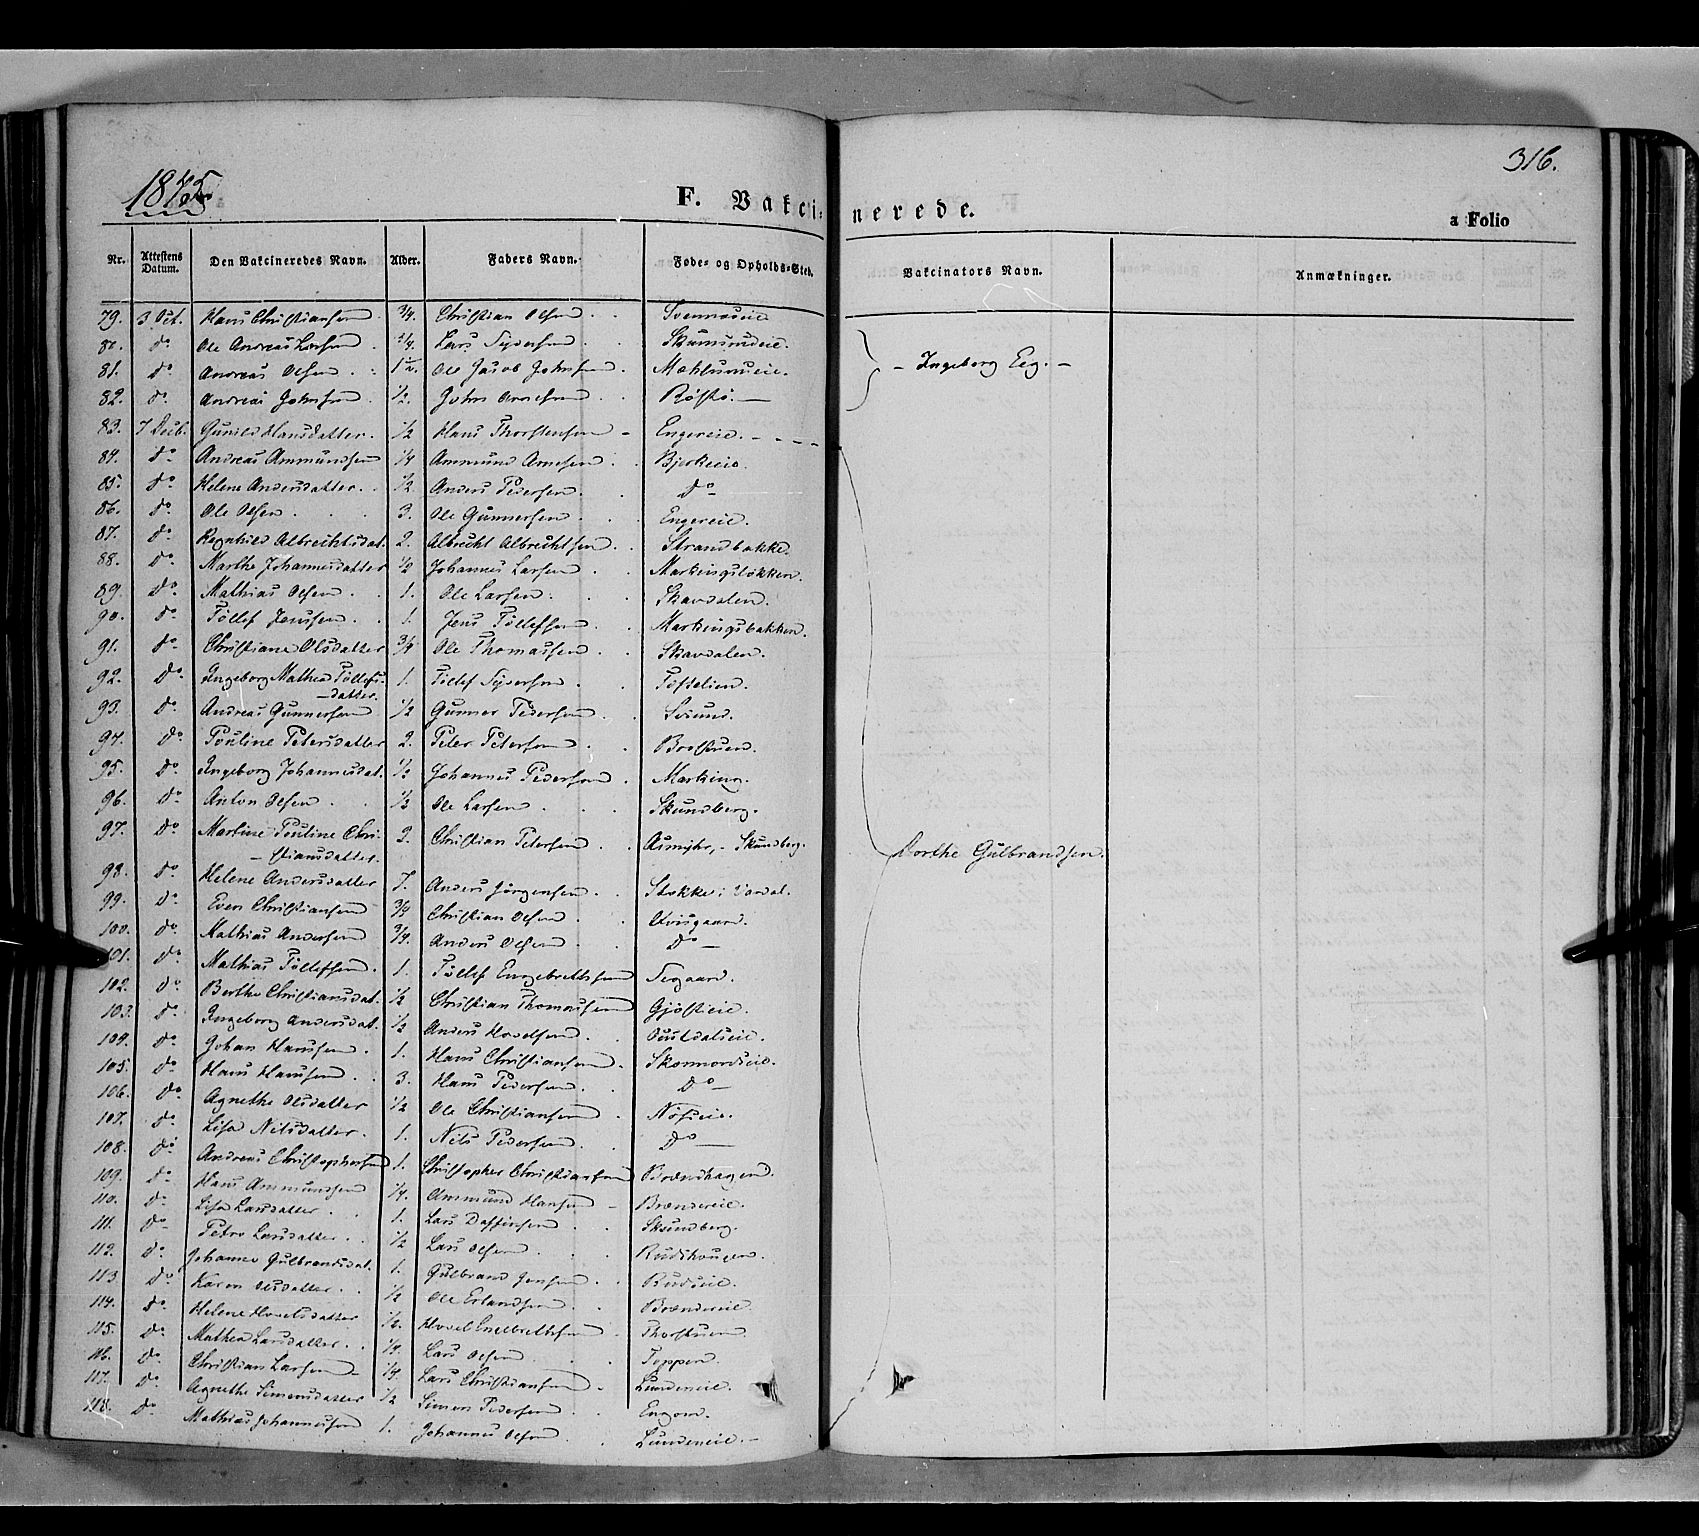 1845.
316.
F. Vakcinerede.
a Folio
Nr. Attestens Datum. Den Vakcineredes Navn. Alder. Faders Navn. Føde- og Opholds-Sted. Vakcinators Navn. Anmærkninger.
79. 3 Oct. Hans Christiansen 3/4. Christian Olsen
80. do Ole Andreas Larsen Lars Syversen
81. do Andreas Olsen Ole Jacob Johnsen Mæhlumseie.
- Ingeborg Eeg. -
82. do Andreas Johnsen 1/2. John Arnesen Røstø.
83. 7 Decb. Gunild Hansdatter. 1/2 Hans Thorstensen Engereie.
84. do Andreas Ammundsen 1/4 Ammund Arnesen Bjerkeeie.
85. do Helene Andersdatter. 1/2 Anders Pedersen. Do
86. do Ole Olsen 3. Ole Gunnersen Engereie.
87. do Regnhild Albrechtsdat. 2. Albrecht Albrechtsen. Strandbakke.
88. do Marthe Johannesdatter 1/2 Johannes Larsen Markingsløkken.
89. do Mathias Olsen 1. Ole Larsen. Skavdalen.
90. do Tollef Jenssen. 1. Jens Tollefsen Markingsbakken.
91. do Christiane Olsdatter 3/4 Ole Thomassen Skavdalen.
92. do Ingeborg Mathea Tollefs-
datter. 1. Tollef Syversen
93. do Andreas Gunnersen 1/2 Gunner Pedersen
94. do Pouline Petersdatter 2. Peter Petersen
95. do Ingeborg Johannesdat. 1/2 Johannes Pedersen Marking.
96. do Anton Olsen 1/2 Ole Larsen Skundberg.
97. do Martine Pouline Chri-
stiansdatter. 2. Christian Petersen - Skundberg.
Dorthe Gulbrandsen.
98. do Helene Andersdatter 7. Anders Jørgensen Stokke i Vardal.
99. do Even Christiansen 3/4 Christian Olsen
100. do Mathias Andersen 3/4. Anders Olsen Do
101. do Mathias Tollefsen. 1. Tollef Engebrethsen
102. do Berthe Christiansdat. 1/2 Christian Thomassen
103. do Ingeborg Andersdat. 1/2 Anders Hovelsen
104. do Johan Hansen. 1. Hans Christiansen
105. do Hans Hansen 3. Hans Pedersen. Do
106. do Agnethe Olsdatter 1/2 Ole Christiansen
107. do Lisa Nilsdatter. 1. Nils Pedersen Do
108. do Andreas Christophersen 1. Christopher Christiansen Brændhagen.
109. do Hans Ammundsen 1/4. Ammund Hansen Brændereie.
110. do Lisa Larsdatter 1. Lars Daffinsen Skundberg.
111. do Petra Larsdatter 1/2 Lars Olsen Rudshougen.
112. do Johanne Gulbrandsdat. 1. Gulbrand Jensen Rudseie.
113. do Karen Olsdatter 1/2 Ole Erlandsen Brændereie.
114. do Helene Hovelsdatter Hovel Engelbrethsen Thorstuen
115. do Mathea Larsdatter 1/4 Lars Olsen Toppen.
116. do Christian Larsen 1/4. Lars Christiansen Lundeneie.
117. do Agnethe Simensdatter 1/2 Simen Pedersen
118. do Mathias Johannessen 1. Johannes Olsen Lundeneie.